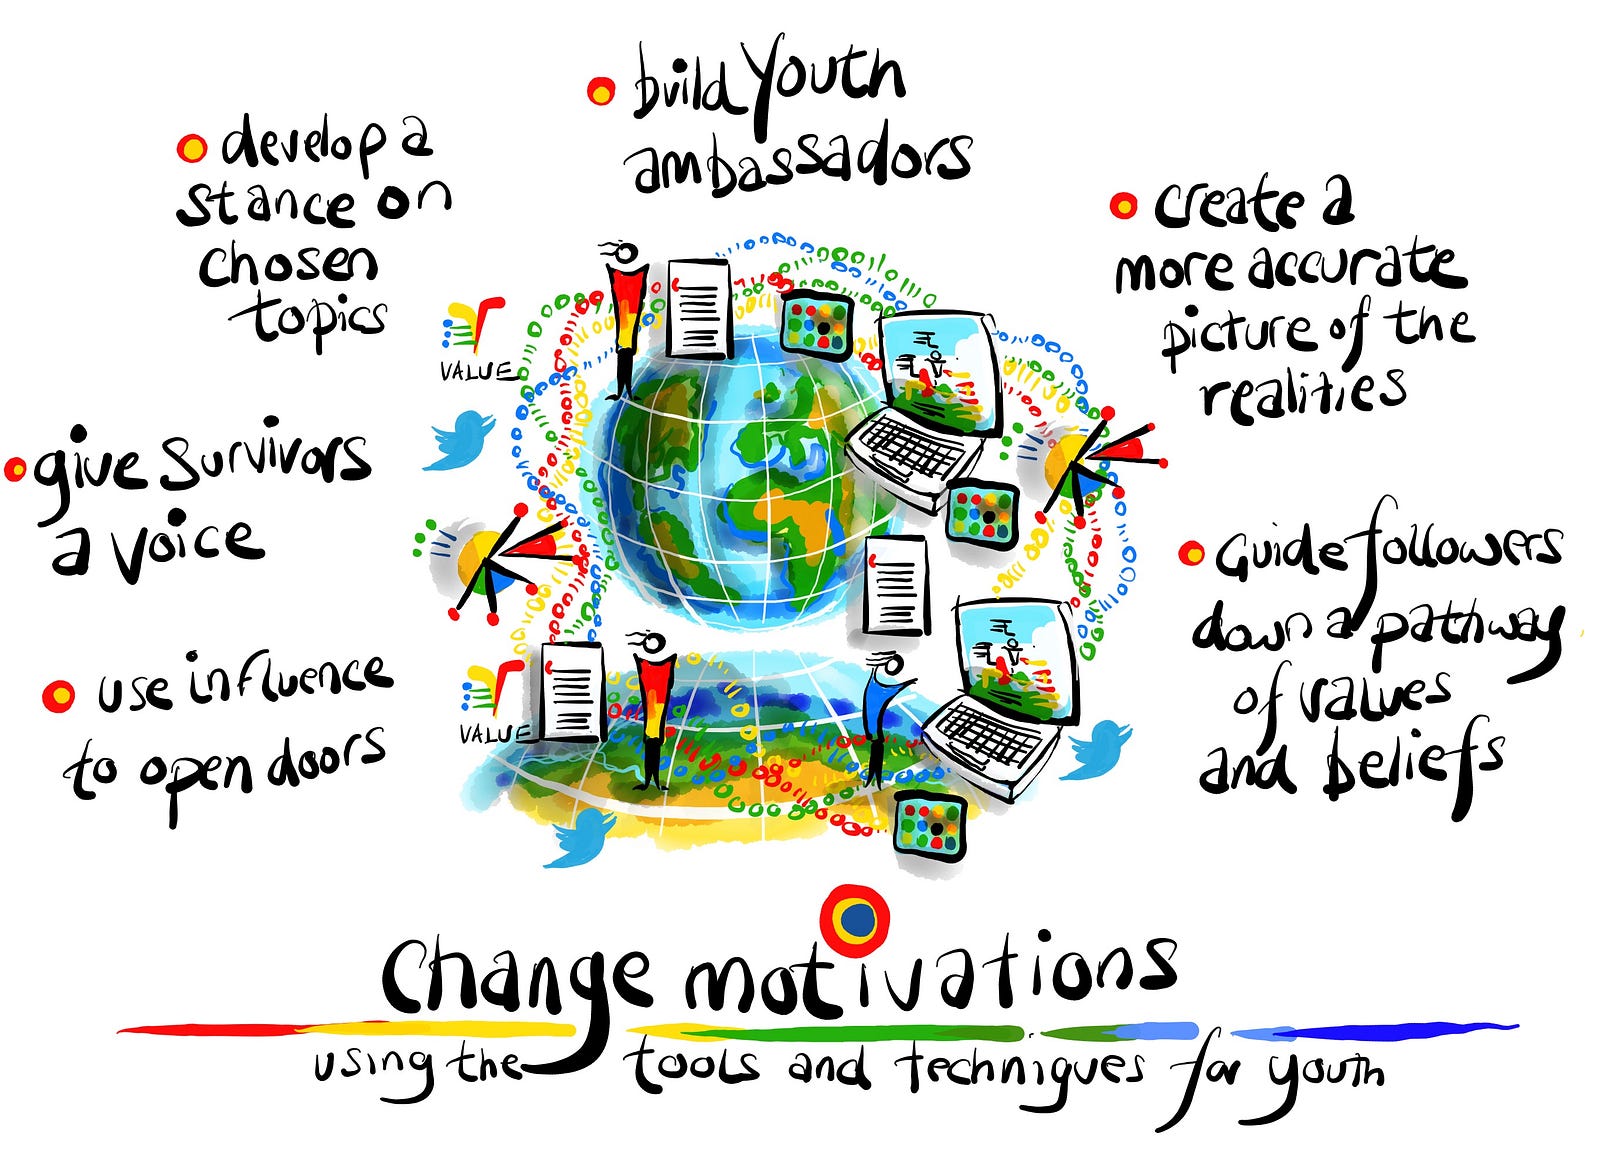 build Youth
ambassadors
develop a
stance on
chosen
topics
create a
more accurate
picture of the
realities
VALUE
give Survivors
a voice
Guide followers
down a pathway
of values
and beliefs
use influence
to open doors
VALUE
Change motivations
using the tools and techniques for youth